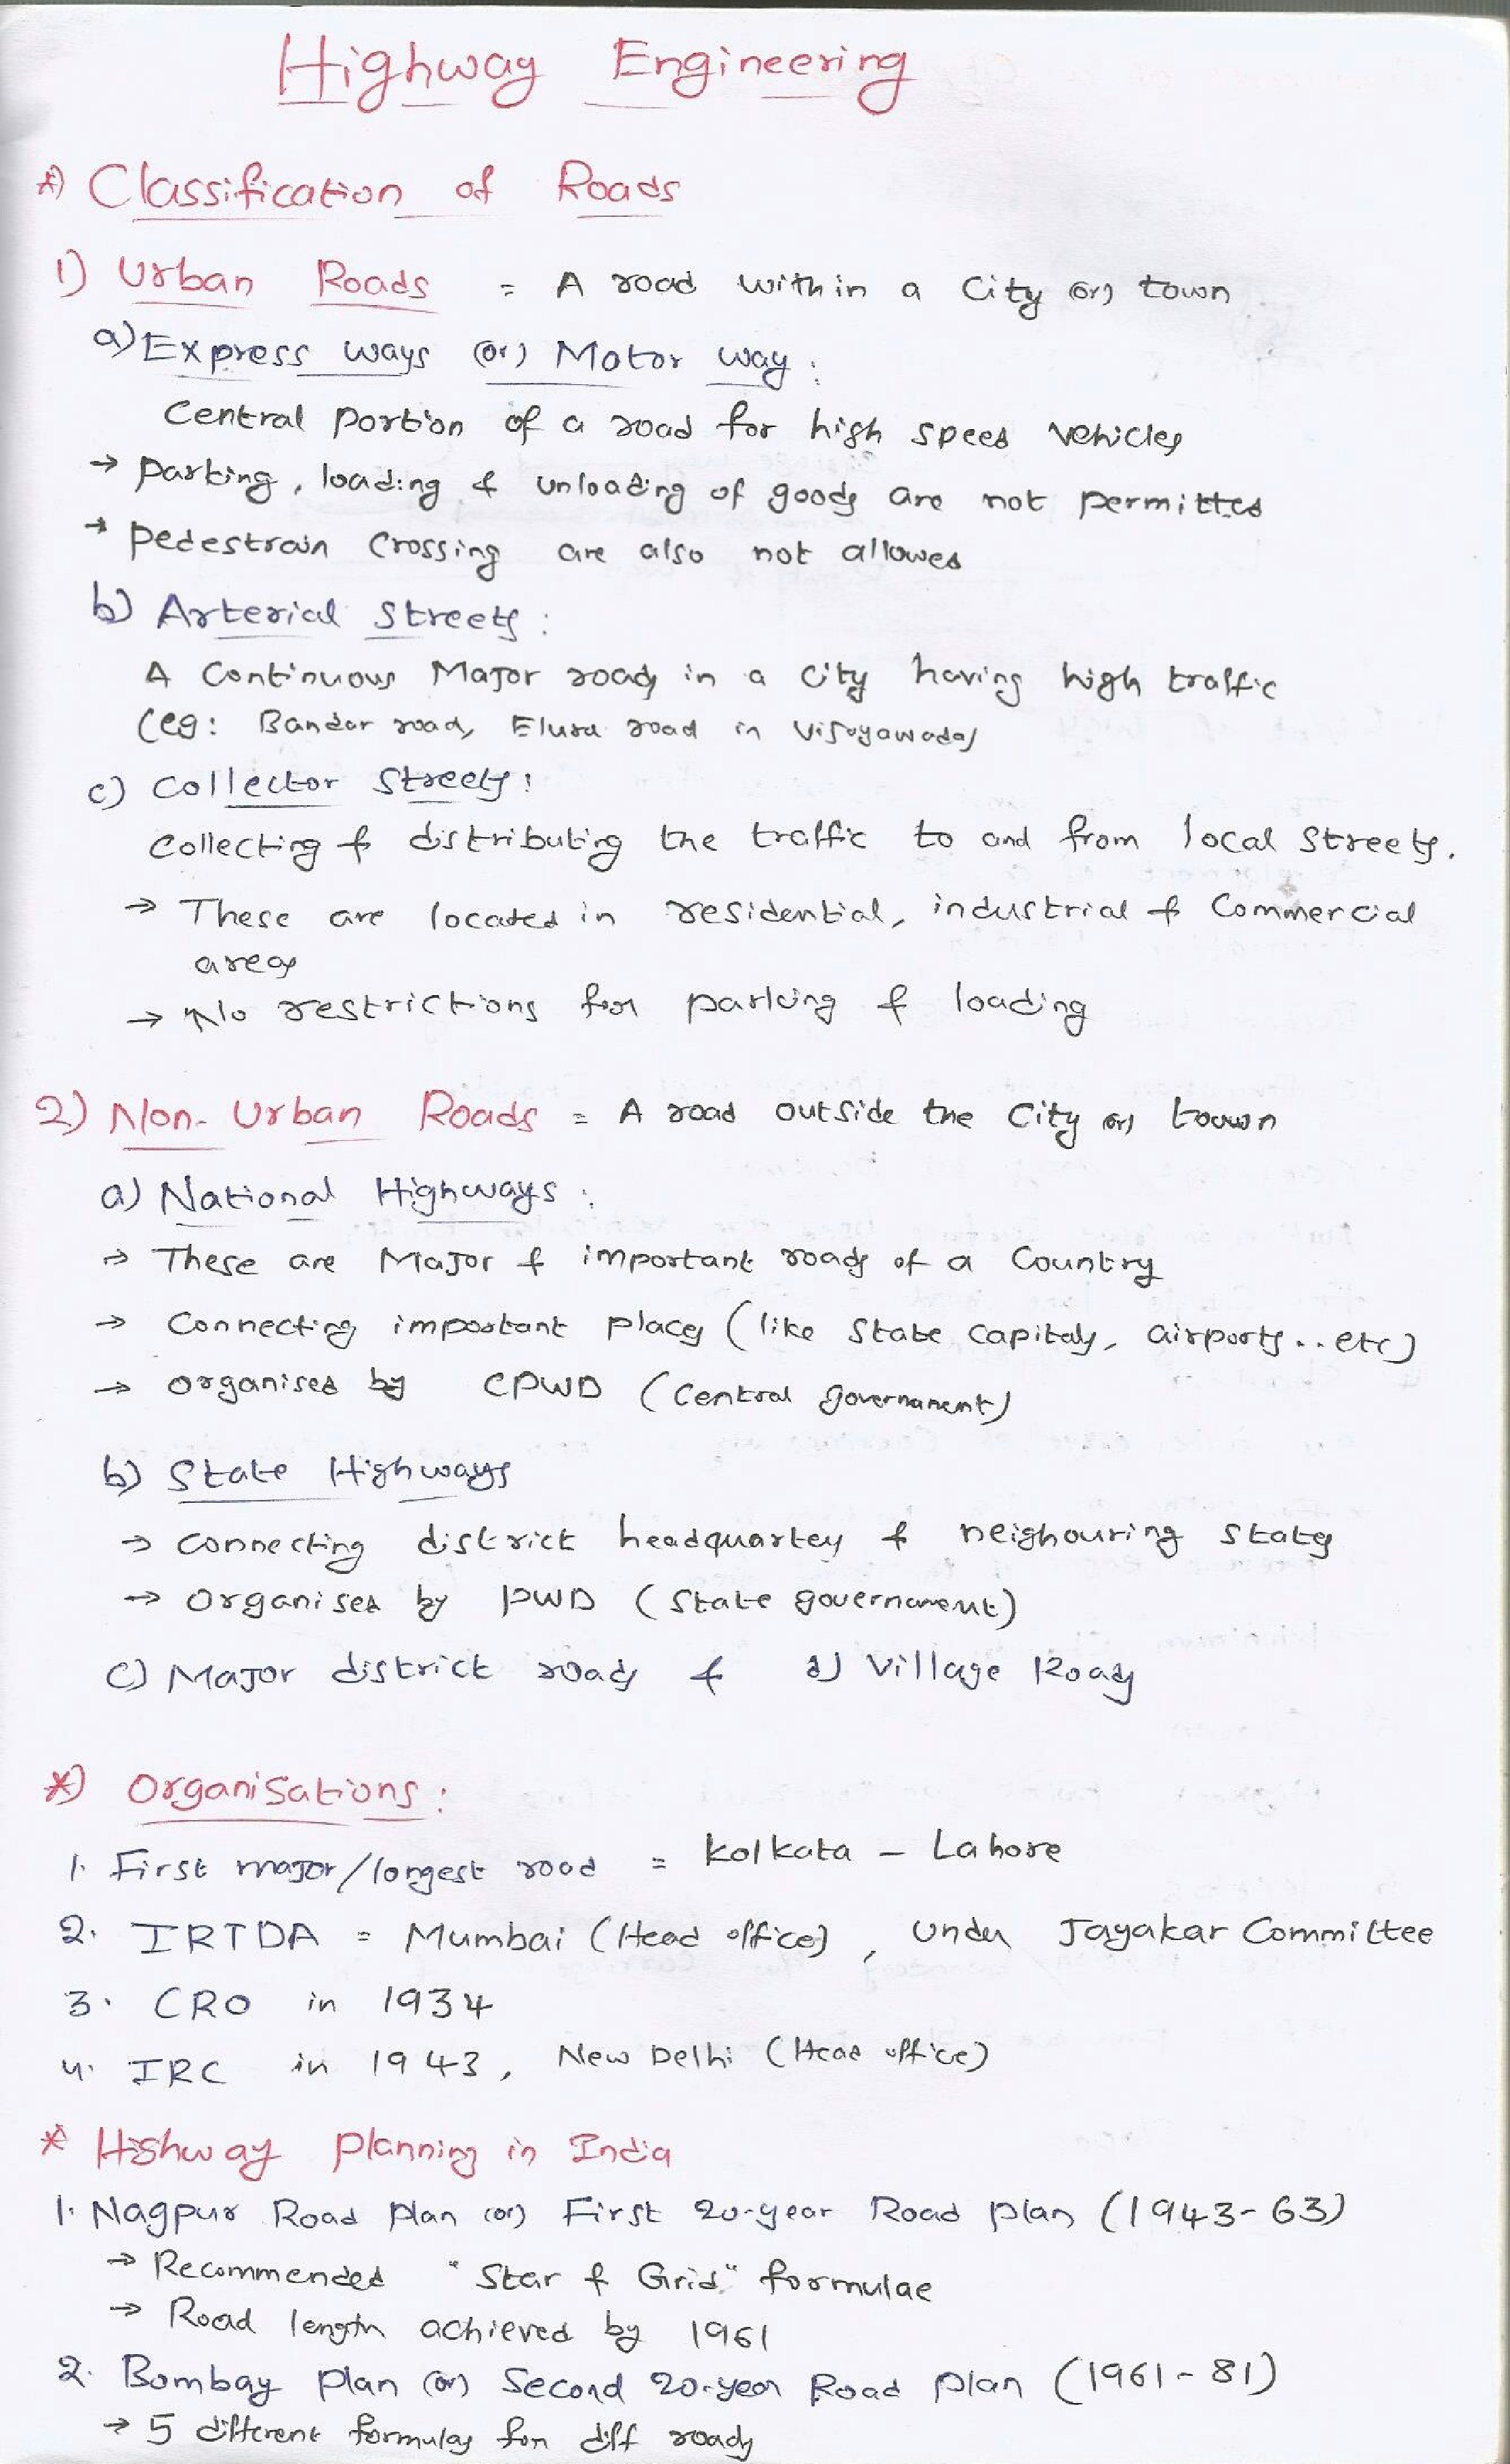 Highway Engineering
*) Classification of Roads
1) Urban Roads = A road within a City (or) town
a) Express ways (or) Motor way :
Central portion of a road for high speed vehicles
→ parking, loading & unloading of goods are not permitted
→ pedestrain crossing are also not allowed
b) Arterial Streets :
A Continuous Major roads in a city having high traffic
(eg: Bandar road, Eluru road in Vijayawada)
c) Collector Streets :
Collecting & distributing the traffic to and from local streets.
→ These are located in residential, industrial & Commercial
areas
→ No restrictions for parking & loading
2) Non-Urban Roads = A road outside the City (or) town
a) National Highways :
→ These are Major & important roads of a Country
→ Connecting important places (like State capitals, airports..etc)
→ organised by CPWD (Central governament)
b) State Highways
→ connecting district headquarters & neighouring states
→ Organised by PWD (State governament)
c) Major district roads & d) Village Roads
*) Organisations :
1. First major/longest road = Kolkata - Lahore
2. IRTDA = Mumbai (Head office), under Jayakar Committee
3. CRO in 1934
4. IRC in 1943, New Delhi (Head office)
* Highway planning in India
1. Nagpur Road plan (or) First 20-year Road plan (1943-63)
→ Recommended "Star & Grid" formulae
→ Road length achieved by 1961
2. Bombay plan (or) Second 20-year Road plan (1961-81)
→ 5 different formulas for diff roads